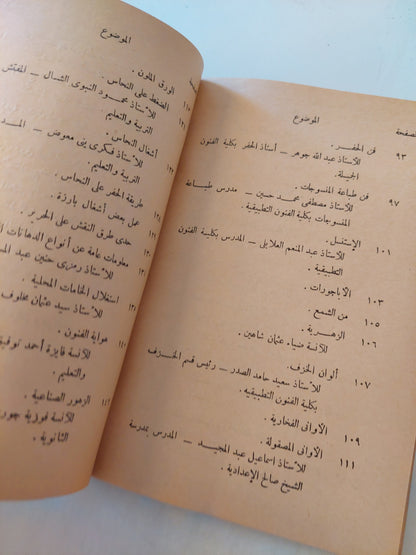 الصفحة
الموضوع
٩٣
فن الحفر .
للأستاذ عبد الله جوهر — أستاذ الحفر بكلية الفنون
الجميلة .
٩٧
فن طباعة المنسوجات .
للأستاذ مصطفى محمد حسين — مدرس طباعة
المنسوجات بكلية الفنون التطبيقية .
١٠١
الإستنسل .
للأستاذ عبد المنعم العلايلى — المدرس بكلية الفنون
التطبيقية .
١٠٣
الأباجورات .
١٠٥
من الشمع .
١٠٦
الزهرية .
للآنسة ضياء عثمان شاهين .
١٠٧
ألوان الخزف .
للأستاذ سعيد حامد الصدر — رئيس قسم الخزف
بكلية الفنون التطبيقيه .
١٠٩
الأوانى الفخارية .
١١١
الأوانى المصقولة .
للأستاذ اسماعيل عبد المجيد — المدرس بمدرسة
الشيخ صالح الإعدادية .
الموضوع
الورق الملون .
١١٥
الضغط على النحاس .
للأستاذ محمود النبوى الشال — المفتش
التربية والتعليم
١٢١
أشغال النحاس .
للأستاذ فكرى بنى معوض — المد
التربية والتعليم .
طريقة الحفر على النحاس .
عمل بعض أشغال بارزة .
حدى طرق النقش على الحرير .
معلومات عامة عن أنواع الدهانات
للأستاذ رمزى حنين عبد
استغلال الخامات المحلية .
للأستاذ سيد عثمان مخلوف
هواية الفنون .
للآنسة فايزة أحمد توفيق
والتعليم .
الزهور الصناعية .
للآنسة فوزية جور
الثانوية .